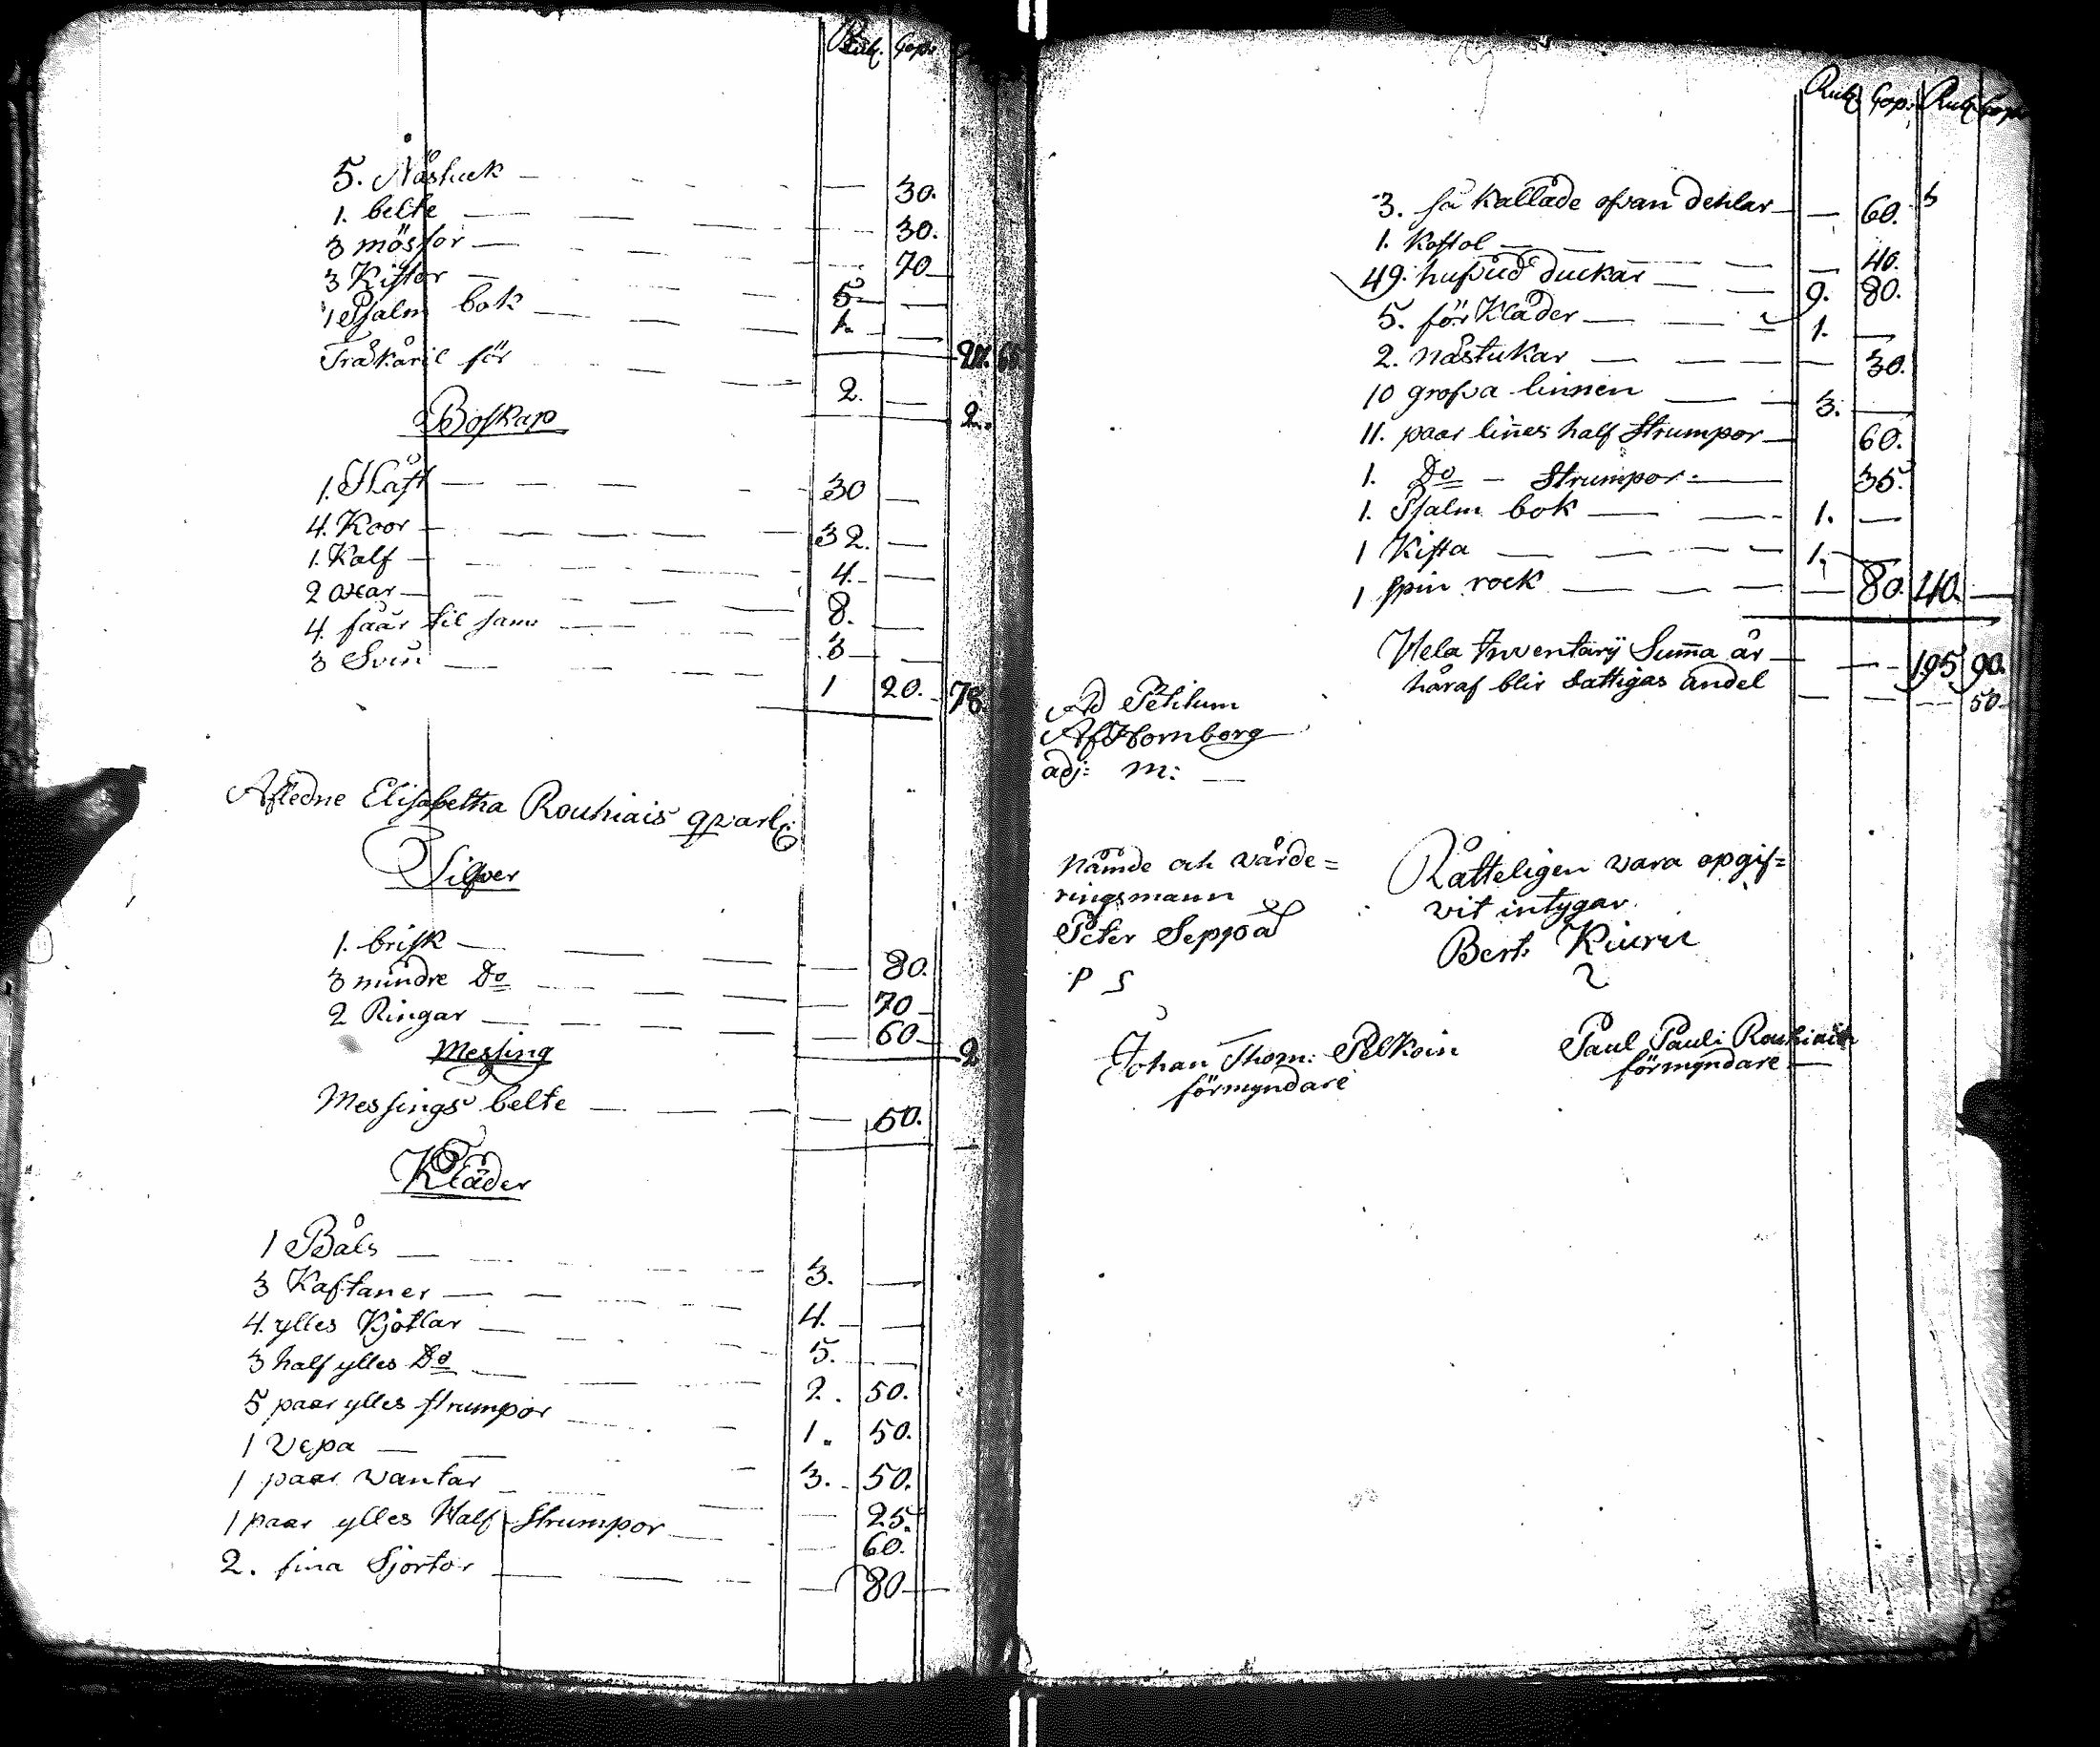 Rub. Cop.
5. Nåstuck — — 30.
1. belte — — 30.
3 mössor — — 70
3 Kistor — 5 —
1 Psalm bok — 1. —
Trä kåril för — 2. —
2.
Boskap
1. Håst — 30 —
4. Koor — 32. —
1. Kalf — 4. —
2 oxar — 8. —
4. fåår til sam — 3 —
3 Svin — 1 20. 78.
Afledne Elisabetha Rouhiais qvarl:
Silfver
1. brisk — — 80.
3 mindre Do — — 70
2 Ringar — — 60 2
Messing
Messings belte — — 50.
Kläder
1 Påls — 3. —
3 Kaftaner — 4. —
4. ylles Kjötlar — 5. —
3 half ylles Do — 2. 50.
5 paar ylles strumpor — 1. 50.
1 Vepa — 3. 50.
1 paar vantar — — 25.
1 paar ylles Half Strumpor — — 60.
2. fina Sjortor — — 80
Rub. Cop. Rub. Cop.
3. så kallade ofvan dehlar — — 60.
1. Koftol — — 40.
49. hufvud duckar — 9. 80.
5. för Kläder — 1. —
2. nåstukar — — 30.
10 grofva linnen — 3. —
11. paar linnes half Strumpor — 60.
1. Do — Strumpor — 35.
1. Psalm bok — 1. —
1 Kista — 1. —
1 spin rock — — 80. 40. —
Hela Inventarij Summa är — — 195 90.
håraf blir Fattigas andel — — — 50
Ad Petitum
Af Hornborg
adj: m: —
Nämde och vårde=
ringsmann
Peter Seppoä
P S
Råtteligen vara opgif=
vit intygar
Bert. Kiuru
Johan Thom: Pelkoin
förmyndare
Paul Pauli Rouhiain
förmyndare —